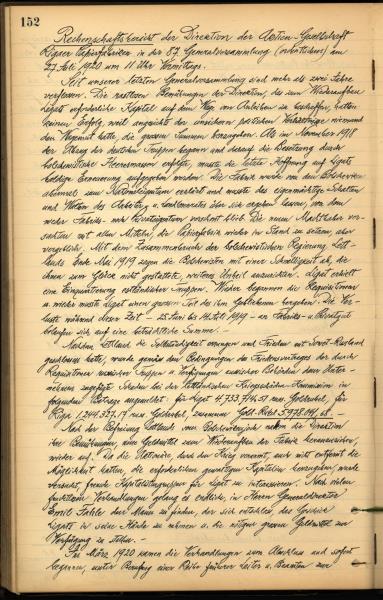 152
Rechenschaftsbericht der Direktion der Aktien-Gesellschaft
Ligater Papierfabriken in der 37. Generalversammlung (ordentlichen) am
27. Juli 1920 um 11 Uhr Vormittags.
Seit unserer letzten Generalversammlung sind mehr als zwei Jahre
verflossen. Die rastlosen Bemühungen der Direktion, das zum Wiederaufbau
Ligats erforderliche Kapital auf dem Wege von Anleihen zu beschaffen, hatten
keinen Erfolg, weil angesichts der unsichern politischen Verhältnisse niemand
den Wagemut hatte, die grossen Summen herzugeben. Als im November 1918
der Abzug der deutschen Truppen begann und darauf die Besetzung durch
bolschewistische Heeresmassen erfolgte, musste die letzte Hoffnung auf Ligats
baldige Erneuerung aufgegeben werden. Die Fabrik wurde von den Bolschewiken
abermals zum Nationaleigentum erklärt und musste das eigenmächtige Schalten
und Walten des Arbeiter- u. Landlosenrates über sich ergehen lassen, von dem
weder Fabriks- noch Privateigentum verschont blieb. Die neuen Machthaber ver-
suchten mit allen Mitteln, die Papierfabrik wieder in Stand zu setzen, aber
vergeblich. Mit dem Zusammenbruch der bolschewistischen Regierung Lett-
lands Ende Mai 1919 zogen die Bolschewiken mit einer Schnelligkeit ab, die
ihnen zum Glück nicht gestattete, weiteres Unheil anzurichten. Ligat erhielt
eine Einquartierung estländischer Truppen. Wieder begannen die Requisitionen
u. wieder musste Ligat einen grossen Teil des ihm Gebliebenen hergeben. Die Ver-
luste während dieser Zeit – 25. Juni bis 14. Okt. 1919 – an Fabriks- u. Privatgut
belaufen sich auf eine beträchtliche Summe. –
Nachdem Lettland die Selbständigkeit errungen und Frieden mit Sowjet-Russland
geschlossen hatte, wurde gemäss den Bedingungen des Friedensvertrages der durch
Requisitionen russischer Truppen u. Verfügungen russischer Behörden dem Unter-
nehmen zugefügte Schaden bei der Lettländischen Kriegsschäden-Kommission in
folgendem Betrage angemeldet: für Ligat 4,733,714.51 russ. Goldrubel, für
Riga 1,244,327.17 russ. Goldrubel, zusammen Gold-Rubel 5.978.041,68. –
Nach der Befreiung Lettlands vom Bolschewikenjoch nahm die Direktion
ihre Bemühungen, eine Geldquelle zum Wiederaufbau der Fabrik heranzuziehen,
wieder auf. Da die Aktionäre, durch den Krieg verarmt, auch weit entfernt die
Möglichkeit hatten, die erforderlichen gewaltigen Kapitalien herzugeben, wurde
versucht, fremde Kapitalistengruppen für Ligat zu interessieren. Nach vielen
fruchtlosen Verhandlungen gelang es endlich, in Herrn Generaldirektor
Emil Fahle den Mann zu finden, der sich entschloss, das Geschick
Ligats in seine Hände zu nehmen u. die nötigen grossen Geldmittel zur
Verfügung zu stellen. –
Im März 1920 kamen die Verhandlungen zum Abschluss und sofort
begannen, unter Berufung einer Reihe früherer Leiter u. Beamten zur